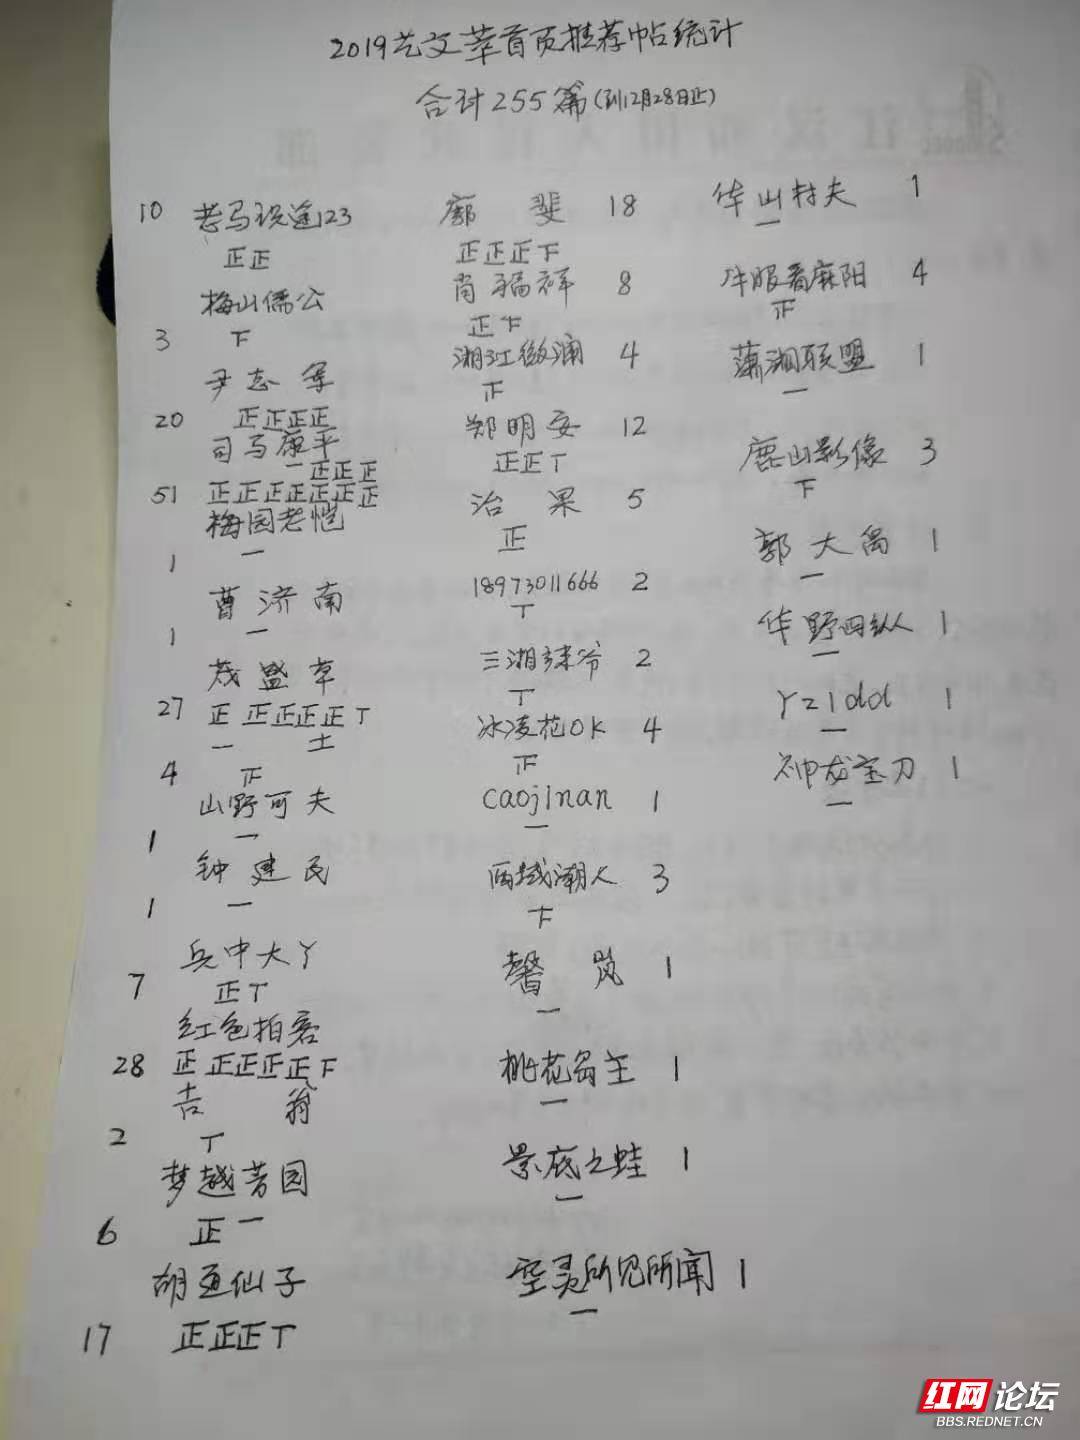 2019艺文萃首页推荐帖统计
合计255篇(到12月28日止)
10 老马识途123
正正
梅山儒公
3 下
尹志军
20 正正正正
司马康平
一正正正
51 正正正正正正正
梅园老恺
1 一
曹济南
1 一
茂盛草
27 正正正正正丅
一 士
4 正
山野可夫
1 一
钟建民
1 一
兵中大丫
7 正丅
红色拍客
28 正正正正正下
吉翁
2 丅
梦越芳园
6 正一
胡亚仙子
17 正正正丅
廓斐 18
正正正下
肖福祥 8
正下
湘江微澜 4
正
郑明安 12
正正丅
治果 5
正
18973011666 2
丅
三湘辣爷 2
丅
冰凌花OK 4
正
caojinan 1
一
西域潮人 3
下
馨岚 1
一
桃花岛主 1
一
景底之蛙 1
一
空灵所见所闻 1
一
华山村夫 1
一
牛眼看麻阳 4
正
潇湘联盟 1
一
鹿山影像 3
下
郭大禹 1
一
华野四纵 1
一
Yz1ddd 1
一
神龙宝刀 1
一
红网论坛
BBS.REDNET.CN